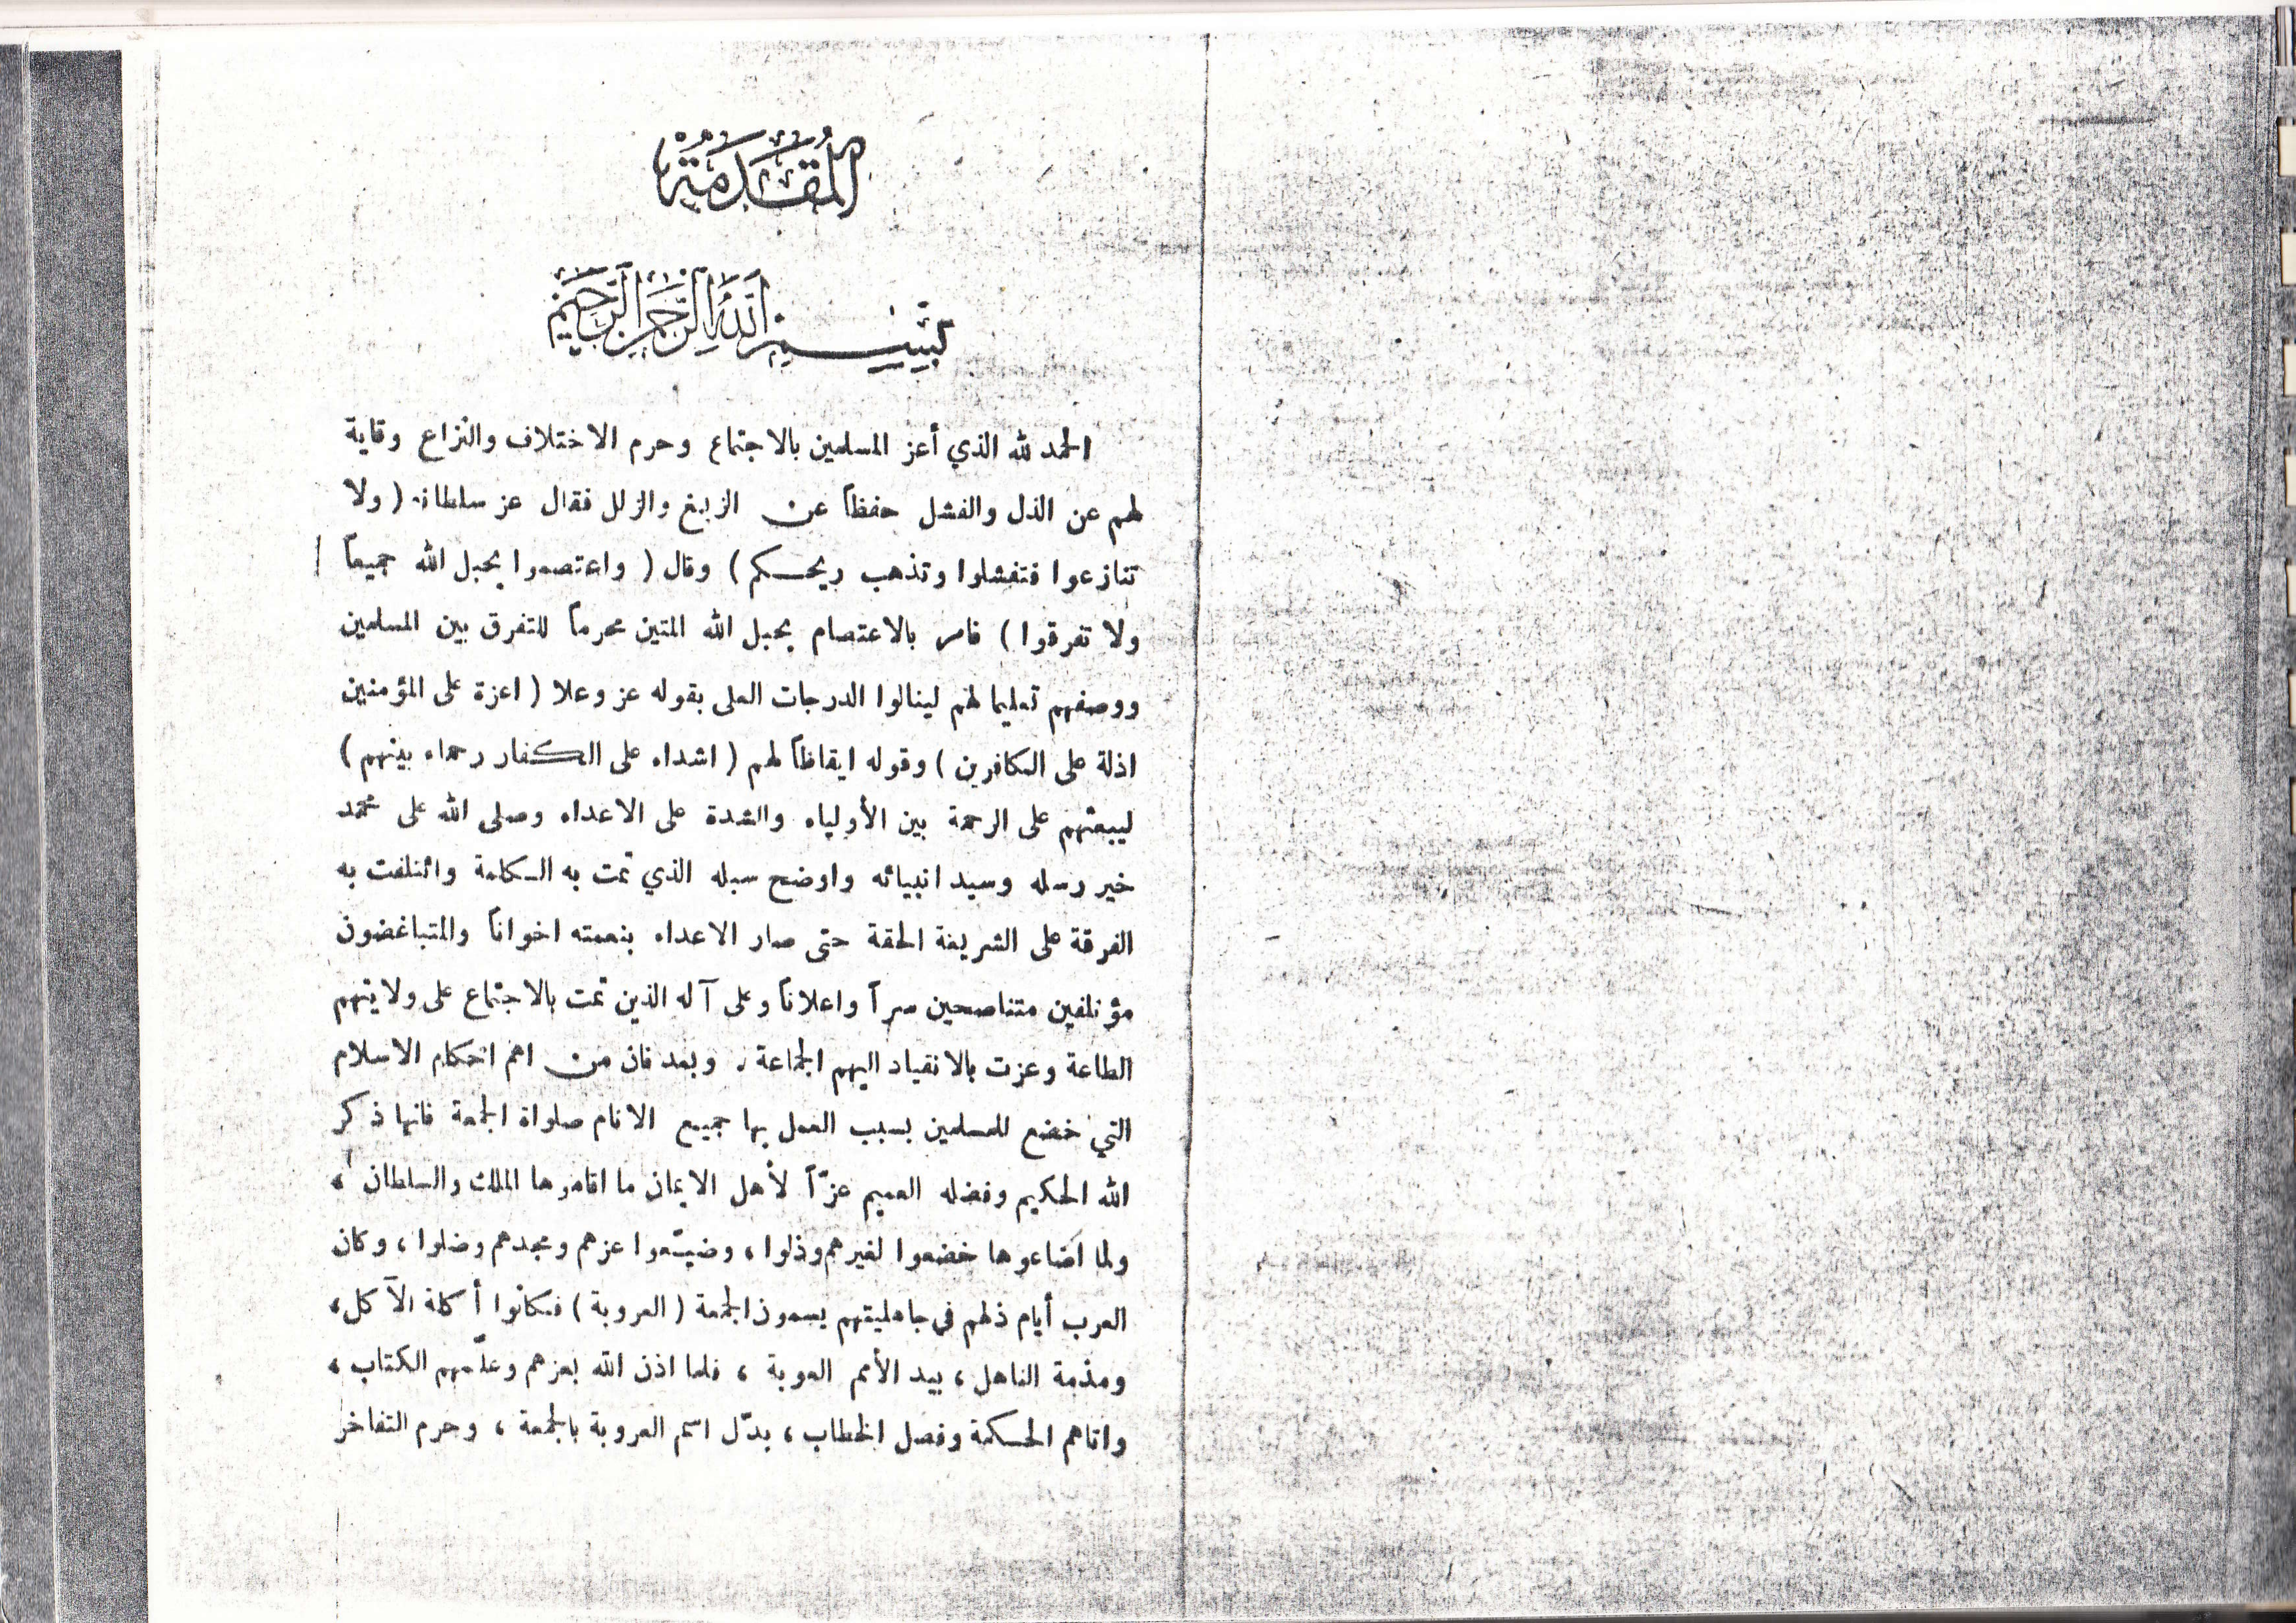 المُقَدِّمَة
بِسْمِ اللهِ الرَّحْمٰنِ الرَّحِيمِ
الحمد لله الذي أعز المسلمين بالاجتماع وحرم الاختلاف والنزاع وقاية
لهم عن الذل والفشل حفظاً عن الزيغ والزلل فقال عز سلطانه ( ولا
تنازعوا فتفشلوا وتذهب ريحكم ) وقال ( واعتصموا بحبل الله جميعاً
ولا تفرقوا ) فامر بالاعتصام بحبل الله المتين محرماً للتفرق بين المسلمين
ووصفهم تعليما لهم لينالوا الدرجات العلى بقوله عز وعلا ( اعزة على المؤمنين
اذلة على الكافرين ) وقوله ايقاظاً لهم ( اشداء على الكفار رحماء بينهم )
ليبعثهم على الرحمة بين الأولياء والشدة على الاعداء وصلى الله على محمد
خير رسله وسيد انبيائه واوضح سبله الذي تمت به الكلمة وائتلفت به
الفرقة على الشريعة الحقة حتى صار الاعداء بنعمته اخواناً والمتباغضون
مؤتلفين متناصحين سراً واعلاناً وعلى آله الذين تمت بالاجتماع على ولايتهم
الطاعة وعزت بالانقياد اليهم الجماعة . وبعد فان من اهم احكام الاسلام
التي خضع للمسلمين بسبب العمل بها جميع الانام صلواة الجمعة فانها ذكر
الله الحكيم وفضله العميم عزّاً لأهل الايمان ما اقاموها الملك والسلطان ،
ولما اضاعوها خضعوا لغيرهم وذلوا ، وضيّعوا عزهم ومجدهم وضلوا ، وكان
العرب أيام ذلهم في جاهليتهم يسمون الجمعة ( العروبة ) فكانوا أكلة الآكل ،
ومذمة الناهل ، بيد الأمم العوبة ، فلما اذن الله بعزهم وعلّمهم الكتاب ،
واتاهم الحكمة وفصل الخطاب ، بدّل اسم العروبة بالجمعة ، وحرم التفاخر